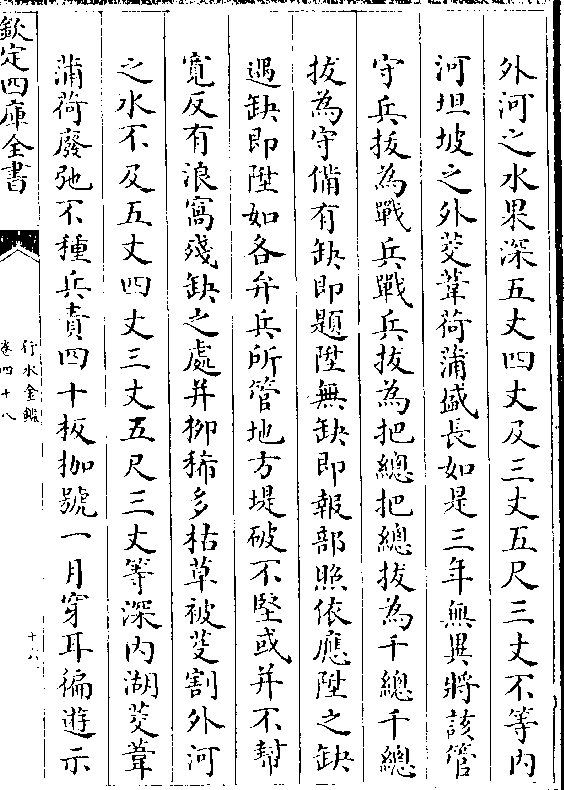 外河之水果深五丈四丈及三丈五尺三丈不等内
河坦坡之外茭葦荷蒲盛長如是三年無異將該管
守兵拔為戰兵戰兵拔為把總把總拔為千總千總
拔為守備有缺即題陞無缺即報部照依應陞之缺
遇缺即陞如各弁兵所管地方堤破不堅或并不幫
寛反有浪窩殘缺之處并栁稀多枯草被芟割外河
之水不及五丈四丈三丈五尺三丈等深内湖茭葦
蒲荷廢弛不種兵責四十板枷號一月穿耳徧遊示
欽定四庫全書
行水金鑑
卷四十八
十八